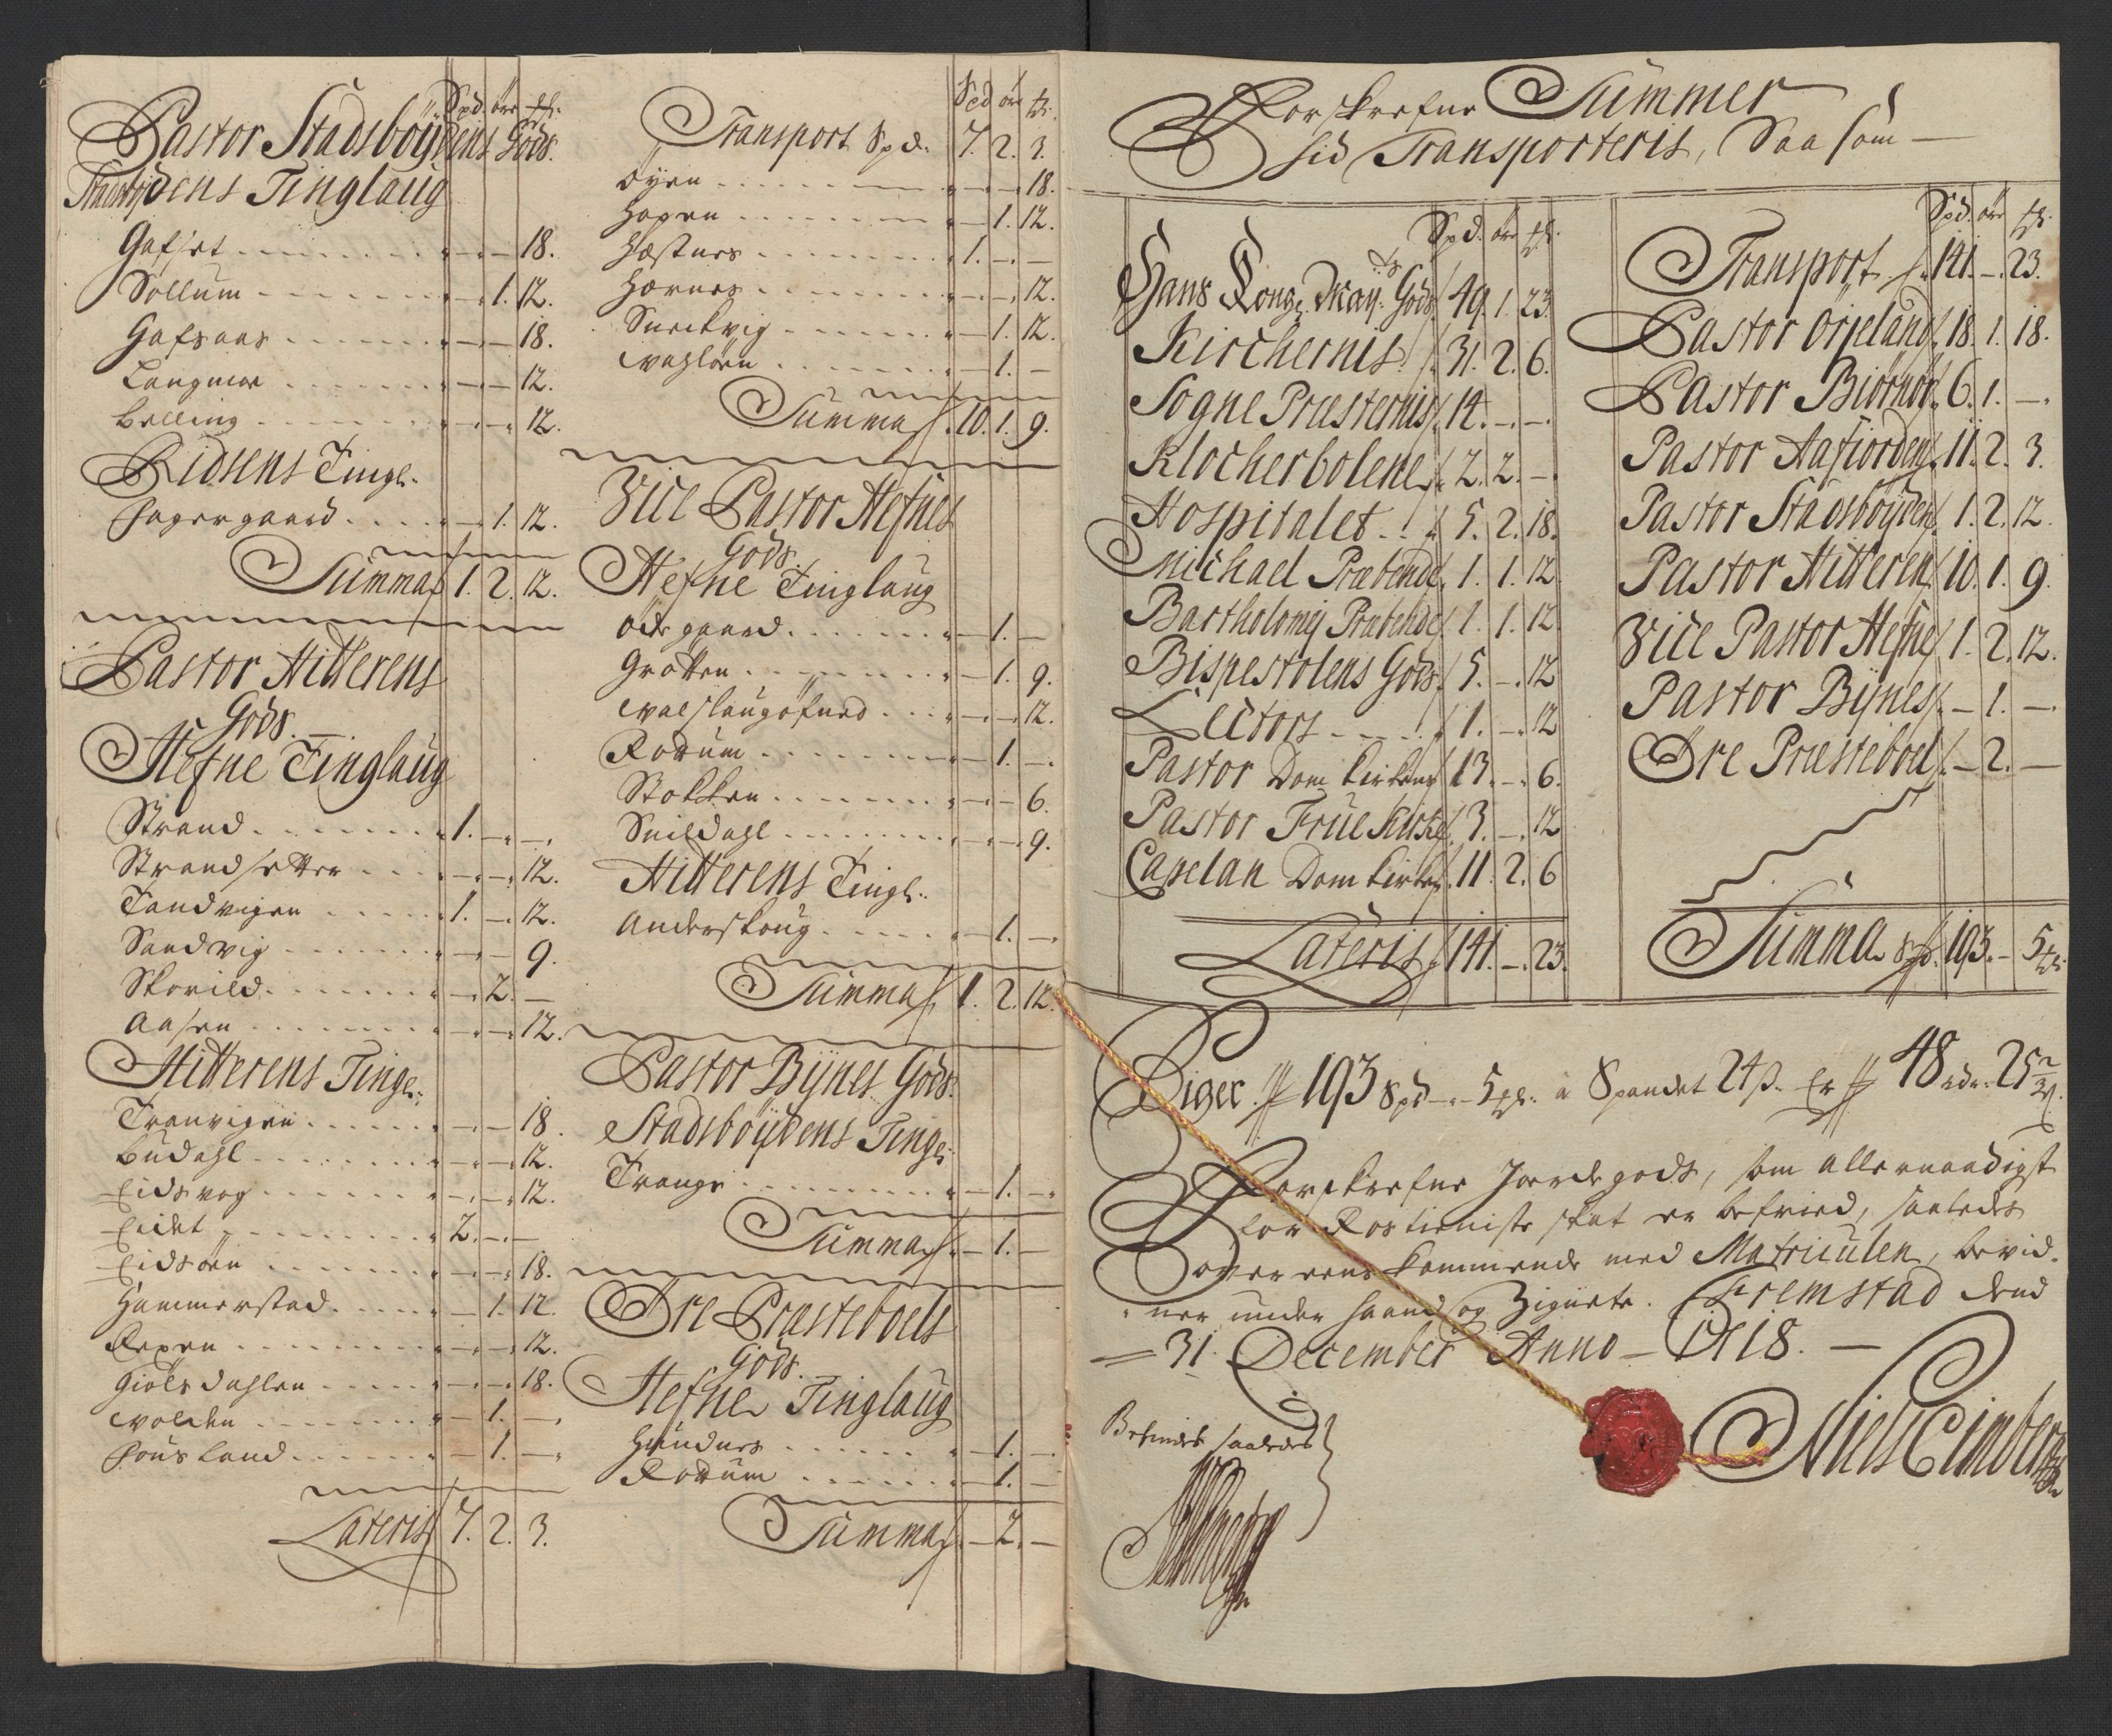 Spd. öre ₰.
Pastor Stadsböÿdens Gods.
Stadsböÿdens Tinglaug
Gafset . . . . " — " — 18.
Sollum . . . . " — 1. 12.
Gafsaas . . . . " — " — 18.
Langmoe . . . . " — " — 12.
Belling . . . . " — " — 12.
Ridsens Tingl:
Hagergaard . . . . " — 1. 12.
Summa 1. 2. 12.
Pastor Hitterens
Gods.
Hefne Tinglaug
Strand . . . . 1. — " —
Strandsetter . . . — " — 12.
Tandvigen . . . . 1. — 12.
Sandvig . . . . " — " — 9.
Skovild . . . . " — 2. —
Aasen . . . . " — " — 12.
Hitterens Tingl:
Tranvigen . . . . " — " — 18.
Budahl . . . . " — " — 12.
Eidsvog . . . . " — " — 12.
Eidet . . . . 2. — " —
Eidsöen . . . . " — " — 18.
Hammerstad . . . . " — 1. 12.
Repen . . . . " — " — 12.
Giölsdahlen . . . . " — " — 18.
Wolden . . . . " — 1. —
Housland . . . . " — 1. —
Lateris 7. 2. 3.
Spd öre ₰.
Transport Spd. 7. 2. 3.
Öyen . . . . " — " — 18.
Hopen . . . . " — 1. 12.
Hæstnes . . . . 1. — " —
Hærnes . . . . " — " — 12.
Sneckvig . . . . " — 1. 12.
Wahlöen . . . . " — 1. —
Summa 10. 1. 9.
Vice Pastor Hefnes
Gods.
Hefne Tinglaug
Ödegaard . . . . " — 1. —
Grotten . . . . " — 1. 9.
Walslaugöfuad . . . " — " — 12.
Rodum . . . . " — 1. —
Stokken . . . . " — " — 6.
Snildahl . . . . " — " — 9.
Hitterens Tingl:
Anderskoug . . . . " — 1. —
Summa 1. 2. 12.
Pastor Bÿnes Gods.
Stadsböÿdens Tingl:
Trange . . . . " — 1. —
Summa — 1. —
Öre Præsteboels
Gods.
Hefne Tinglaug
Hundnes . . . . " — 1. —
Rodum . . . . " — 1. —
Summa — 2. —
Forskrefne Summer
hid Transporteris, Saa som —
Spd. öre ₰.
Hans Kong: Maÿ:ts Gods 49. 1. 23.
Kirchernis 31. 2. 6.
Sogne Præsternis 14. — " —
Klocherbolene 2. 2. —
Hospitalet . . 5. 2. 18.
Michael Præbende 1. 1. 12.
Bartholomej Præbende 1. 1. 12.
Bispestolens Gods 5. — 12
Lectors . . . . 1. — 12
Pastor Dom Kirkens 13. — 6.
Pastor Frue Kirke 3. — 12
Capelan Dom Kirken 11. 2. 6
Lateris 141. — 23.
Spd. öre ₰.
Transport 141. — 23.
Pastor Örjeland 18. 1. 18.
Pastor Biörnör 6. 1. —
Pastor Aafiorden 11. 2. 3.
Pastor Stadsböÿden 1. 2. 12.
Pastor Hitteren 10. 1. 9.
Vice Pastor Hefne 1. 2. 12.
Pastor Bÿnes — 1. —
Öre Præsteboel — 2. —
Summa Spd. 193. — 5 ₰.
Siger 193 Spd — 5 ₰. à Spandet 24 β. Er 48 rdr. 25 2/3 β.
Forskrefne Jordegods, som allernaadigst
for Rostieniste skat er befried, saaledes
over eens kommende med Matriculen, bevid-
ner under haand og Zignete. Fremstad dend
— 31. December Anno — 1718. —
Niels Cimber
Befindes saaledes